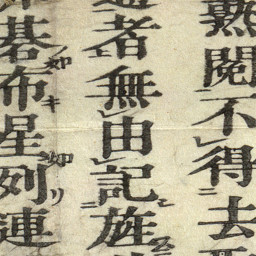 熟閱不得去
者無由記旌
碁布星列連